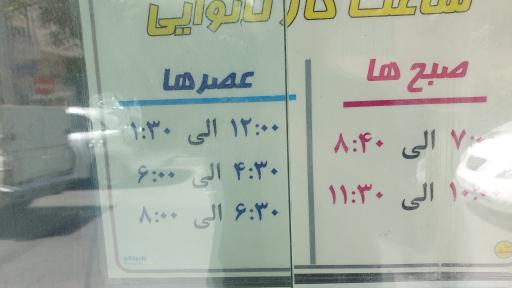 ساعت کار نانوایی
صبح ها
۷:۰۰ الی ۸:۴۰
۱۰:۰۰ الی ۱۱:۳۰
عصرها
۱۲:۰۰ الی ۱:۳۰
۴:۳۰ الی ۶:۰۰
۶:۳۰ الی ۸:۰۰